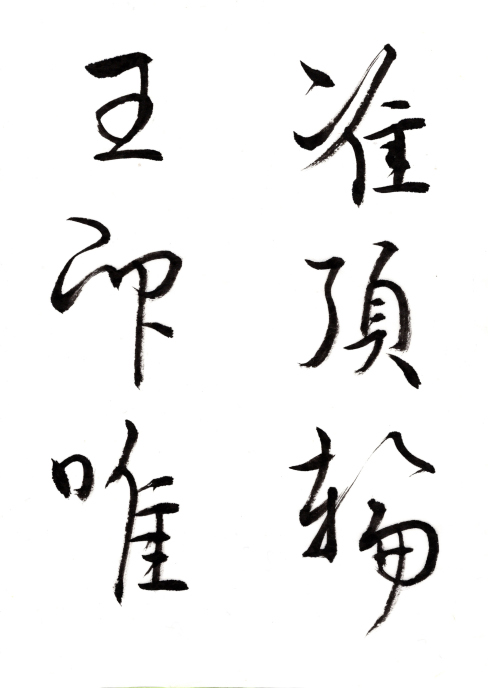 准頂輪
王印唯